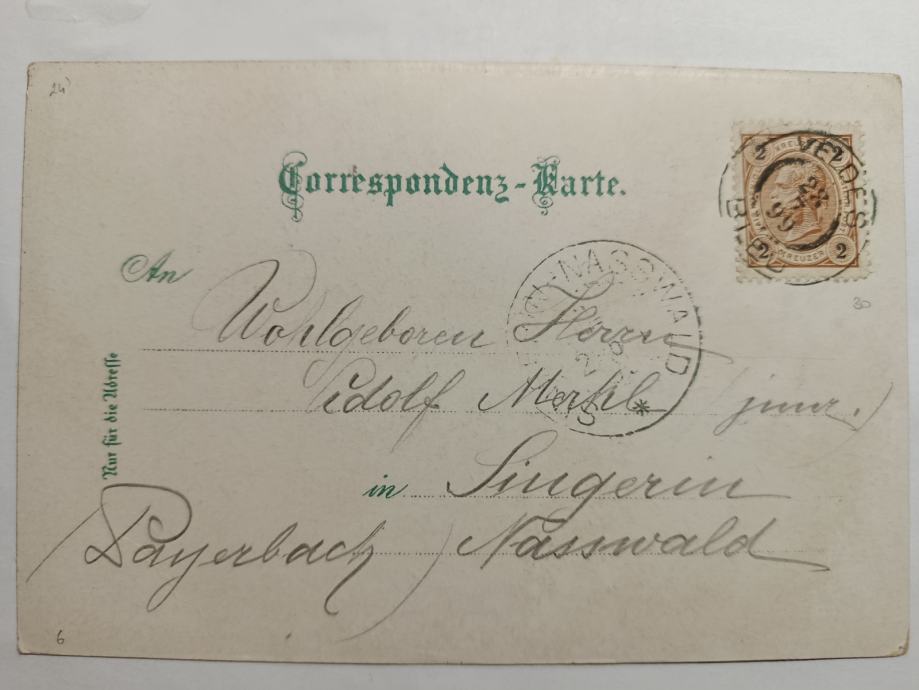 24)
Correspondenz-Karte.
2 KREUZER 2
2 KREUZER 2
VELDES
28
99
BLED
30
An
NASSWALD
Wohlgeboren Herrn
Adolf Merkl (junr.)
Nur für die Adresse
in Singerin
(Payerbach) Nasswald
6